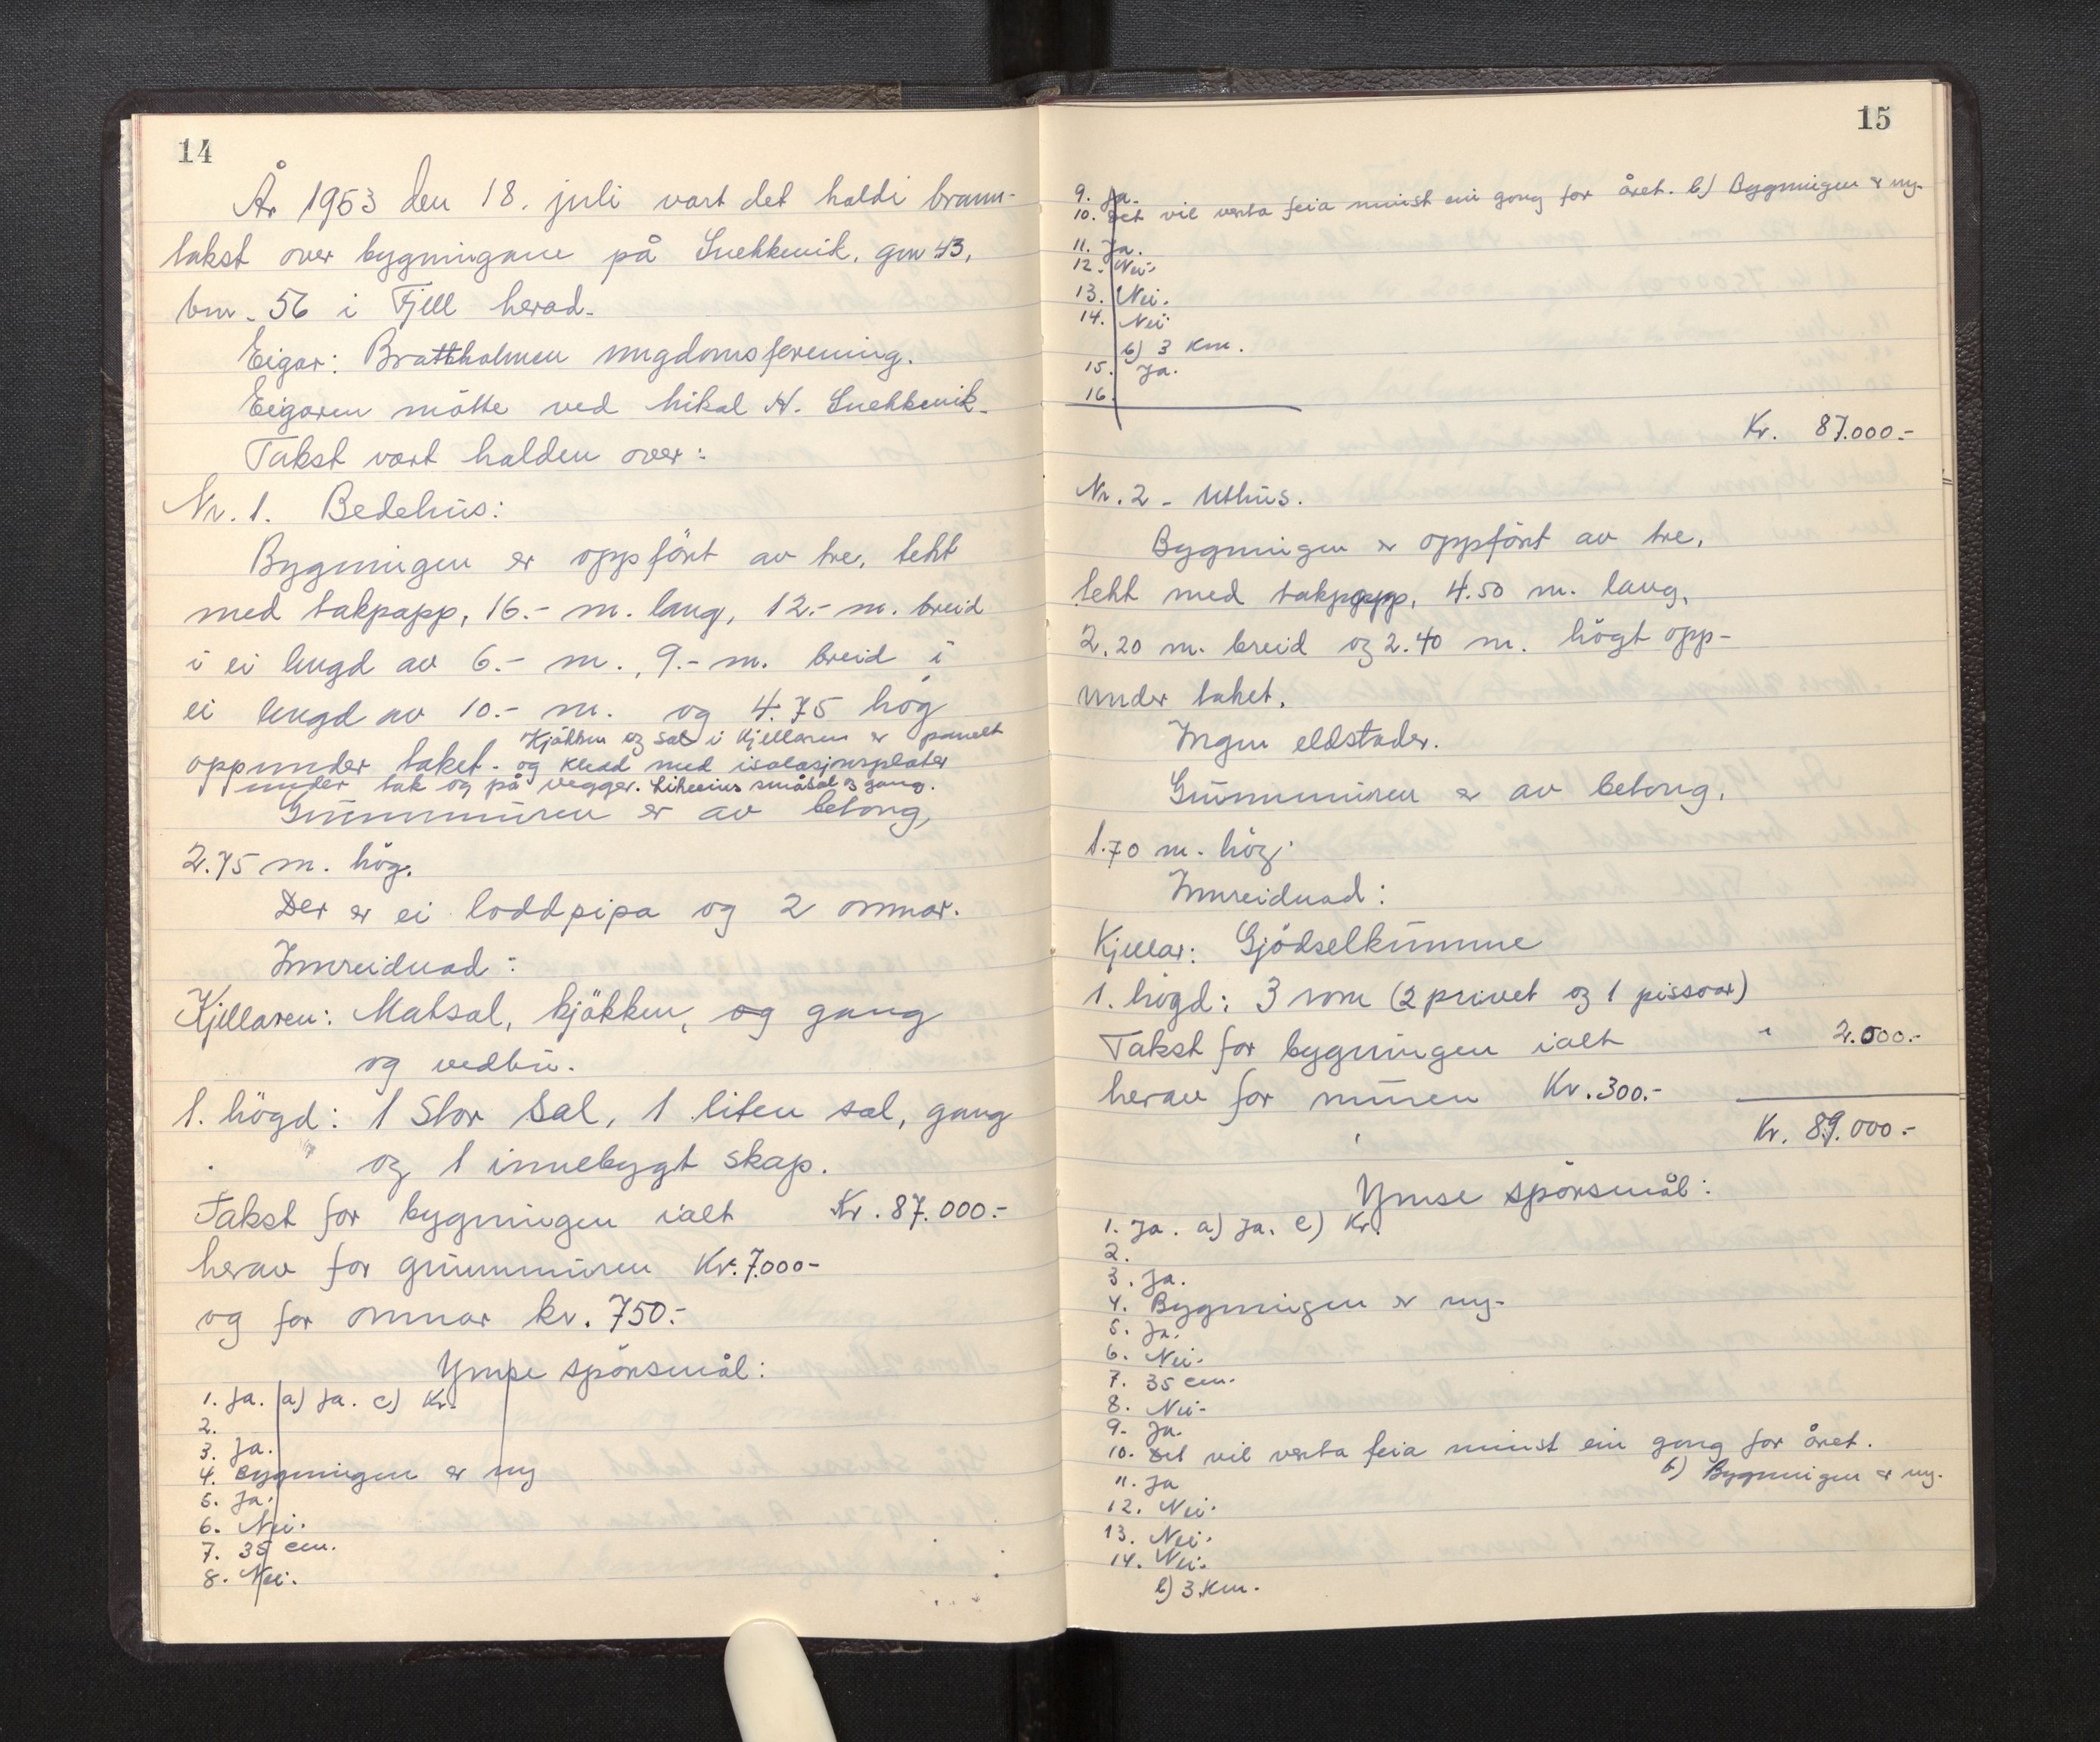 14
År 1953 den 18. juli vart det haldi brann-
takst over bygningane på Snekkevik, gnr 43,
bnr. 56 i Fjell herad.
Eigar: Brattholmen ungdomsforening.
Eigaren møtte ved Mikal N. Snekkevik.
Takst vart halden over:
Nr. 1. Bedehus:
Bygningen er oppført av tre, tekt
med takpapp, 16.- m. lang, 12.- m. breid
i ei lengd av 6.- m., 9.- m. breid i
ei lengd av 10.- m. og 4.75 høg
Kjøkken og sal i kjellaren er panelt
oppunder taket. og kledd med isolasjonsplater
under tak og på vegger. Likeeins småsal og gang.
Grunnmuren er av betong,
2.75 m. høg.
Der er ei loddpipa og 2 omnar.
Innreidnad:
Kjellaren: Matsal, kjøkken, og gang
og vedbu.
1. høgd: 1 Stor Sal, 1 liten sal, gang
og 1 innebygt skap.
Takst for bygningen ialt Kr. 87.000.-
herav for grunnmuren Kr. 7.000-
og for omnar kr. 750.-
Ymse spörsmål:
1. Ja. a) Ja. c) Kr.
2.
3. Ja.
4. Bygningen er ny
5. Ja.
6. Nei.
7. 35 cm.
8. Nei.
15
9. Ja.
10. Det vil verta feia minst ein gong for året. b) Bygningen er ny.
11. Ja.
12. Nei.
13. Nei.
14. Nei
b) 3 Km.
15. Ja.
16.
Kr. 87.000.-
Nr. 2 - Uthus.
Bygningen er oppført av tre,
tekt med takpapp, 4.50 m. lang,
2.20 m. breid og 2.40 m. högt opp-
under taket.
Ingen eldstader.
Grunnmuren er av betong,
1.70 m. høg.
Innreidnad:
Kjellar: Gjödselkumme
1. högd: 3 rom (2 privet og 1 pissoar)
Takst for bygningen ialt " 2.000.-
herav for muren Kr. 300.-
Kr. 89.000.-
Ymse spörsmål:
1. Ja. a) Ja. c) Kr.
2.
3. Ja.
4. Bygningen er ny.
5. Ja.
6. Nei.
7. 35 cm.
8. Nei.
9. Ja.
10. Det vil verta feia minst ein gong for året.
b) Bygningen er ny.
11. Ja
12. Nei.
13. Nei.
14. Nei.
b) 3 Km.